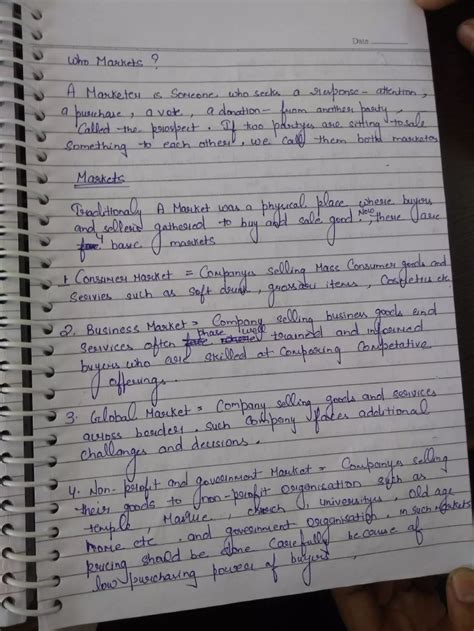 Date
Who Markets ?
A Marketer is Someone who seeks a response - attention,
a purchase, a vote, a donation - from another party,
Called the prospect. If two partyes are
something to each other, we call them both marketers
Markets
Traditionaly A Market was a physical place where buyers
and sellers gathered to buy and sale good. Now, there are
4 basic markets
1 Consumer Market = Companys selling Mass Consumer goods and
Servies such as soft drink, items, etc.
2. Business Market = Company selling business goods and
services often trained and informed
buyers who are skilled at Comparing Competative
offerings.
3. Global Market = Company selling goods and services
across border, such Company faces additional
challanges and decisions.
4. Non-profit and government Market = Companys selling
their goods to non-profit organisation such as
temple, church, universityes, old age
home etc. and government organisation, in such markets
pricing should be done Carefully because of
low purchasing power of buyers.